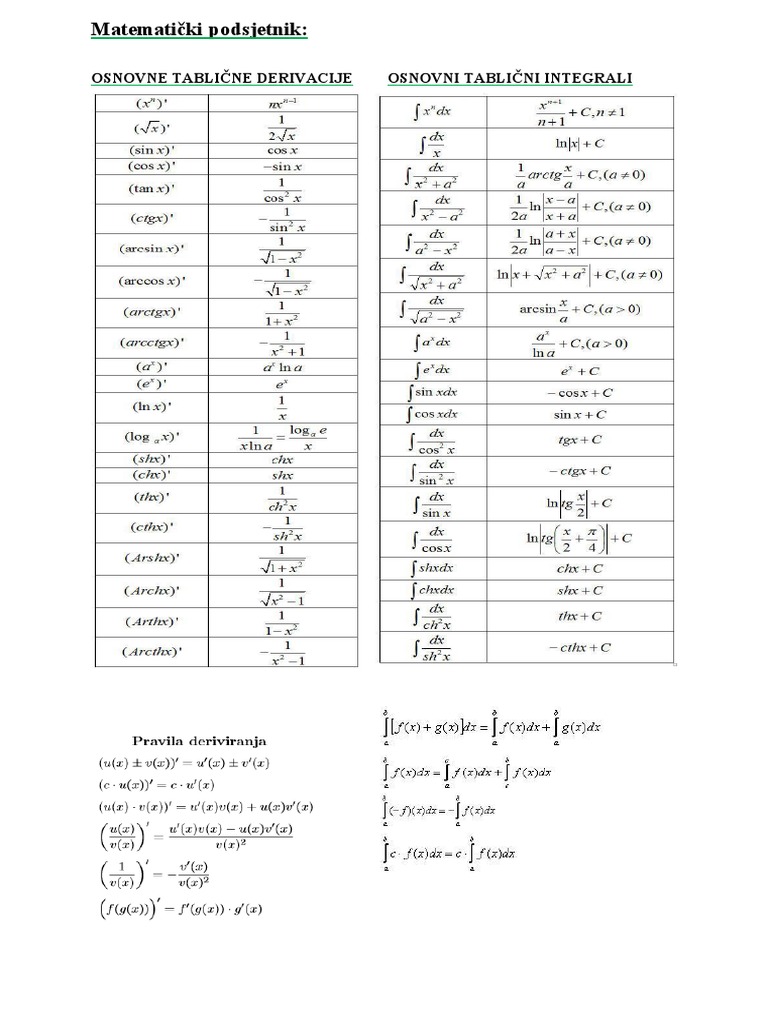 Matematički podsjetnik:
OSNOVNE TABLIČNE DERIVACIJE
(xⁿ)' nxⁿ⁻¹
(√x)' 1/(2√x)
(sin x)' cos x
(cos x)' −sin x
(tan x)' 1/cos² x
(ctgx)' −1/sin² x
(arcsin x)' 1/√(1−x²)
(arccos x)' −1/√(1−x²)
(arctgx)' 1/(1+x²)
(arcctgx)' −1/(x²+1)
(aˣ)' aˣ ln a
(eˣ)' eˣ
(ln x)' 1/x
(log ₐ x)' 1/(x ln a) = logₐ e/x
(shx)' chx
(chx)' shx
(thx)' 1/ch²x
(cthx)' −1/sh²x
(Arshx)' 1/√(1+x²)
(Archx)' 1/√(x²−1)
(Arthx)' 1/(1−x²)
(Arcthx)' −1/(x²−1)
OSNOVNI TABLIČNI INTEGRALI
∫xⁿdx xⁿ⁺¹/(n+1) + C, n ≠ 1
∫dx/x ln|x| + C
∫dx/(x² + a²) 1/a arctg x/a + C, (a ≠ 0)
∫dx/(x² − a²) 1/2a ln|(x − a)/(x + a)| + C, (a ≠ 0)
∫dx/(a² − x²) 1/2a ln|(a + x)/(a − x)| + C, (a ≠ 0)
∫dx/√(x² + a²) ln|x + √(x² + a²)| + C, (a ≠ 0)
∫dx/√(a² − x²) arcsin x/a + C, (a > 0)
∫aˣdx aˣ/ln a + C, (a > 0)
∫eˣdx eˣ + C
∫sin xdx − cos x + C
∫cos xdx sin x + C
∫dx/cos² x tgx + C
∫dx/sin² x − ctgx + C
∫dx/sin x ln|tg x/2| + C
∫dx/cos x ln|tg(x/2 + π/4)| + C
∫shxdx chx + C
∫chxdx shx + C
∫dx/ch²x thx + C
∫dx/sh²x − cthx + C
Pravila deriviranja
(u(x) ± v(x))′ = u′(x) ± v′(x)
(c · u(x))′ = c · u′(x)
(u(x) · v(x))′ = u′(x)v(x) + u(x)v′(x)
(u(x)/v(x))′ = (u′(x)v(x) − u(x)v′(x))/v(x)²
(1/v(x))′ = −v′(x)/v(x)²
(f(g(x)))′ = f′(g(x)) · g′(x)
∫ₐᵇ[f(x) + g(x)]dx = ∫ₐᵇ f(x)dx + ∫ₐᵇ g(x)dx
∫ₐᵇ f(x)dx = ∫ₐᶜ f(x)dx + ∫ᶜᵇ f(x)dx
∫ₐᵇ(−f)(x)dx = −∫ₐᵇ f(x)dx
∫ₐᵇ c · f(x)dx = c · ∫ₐᵇ f(x)dx